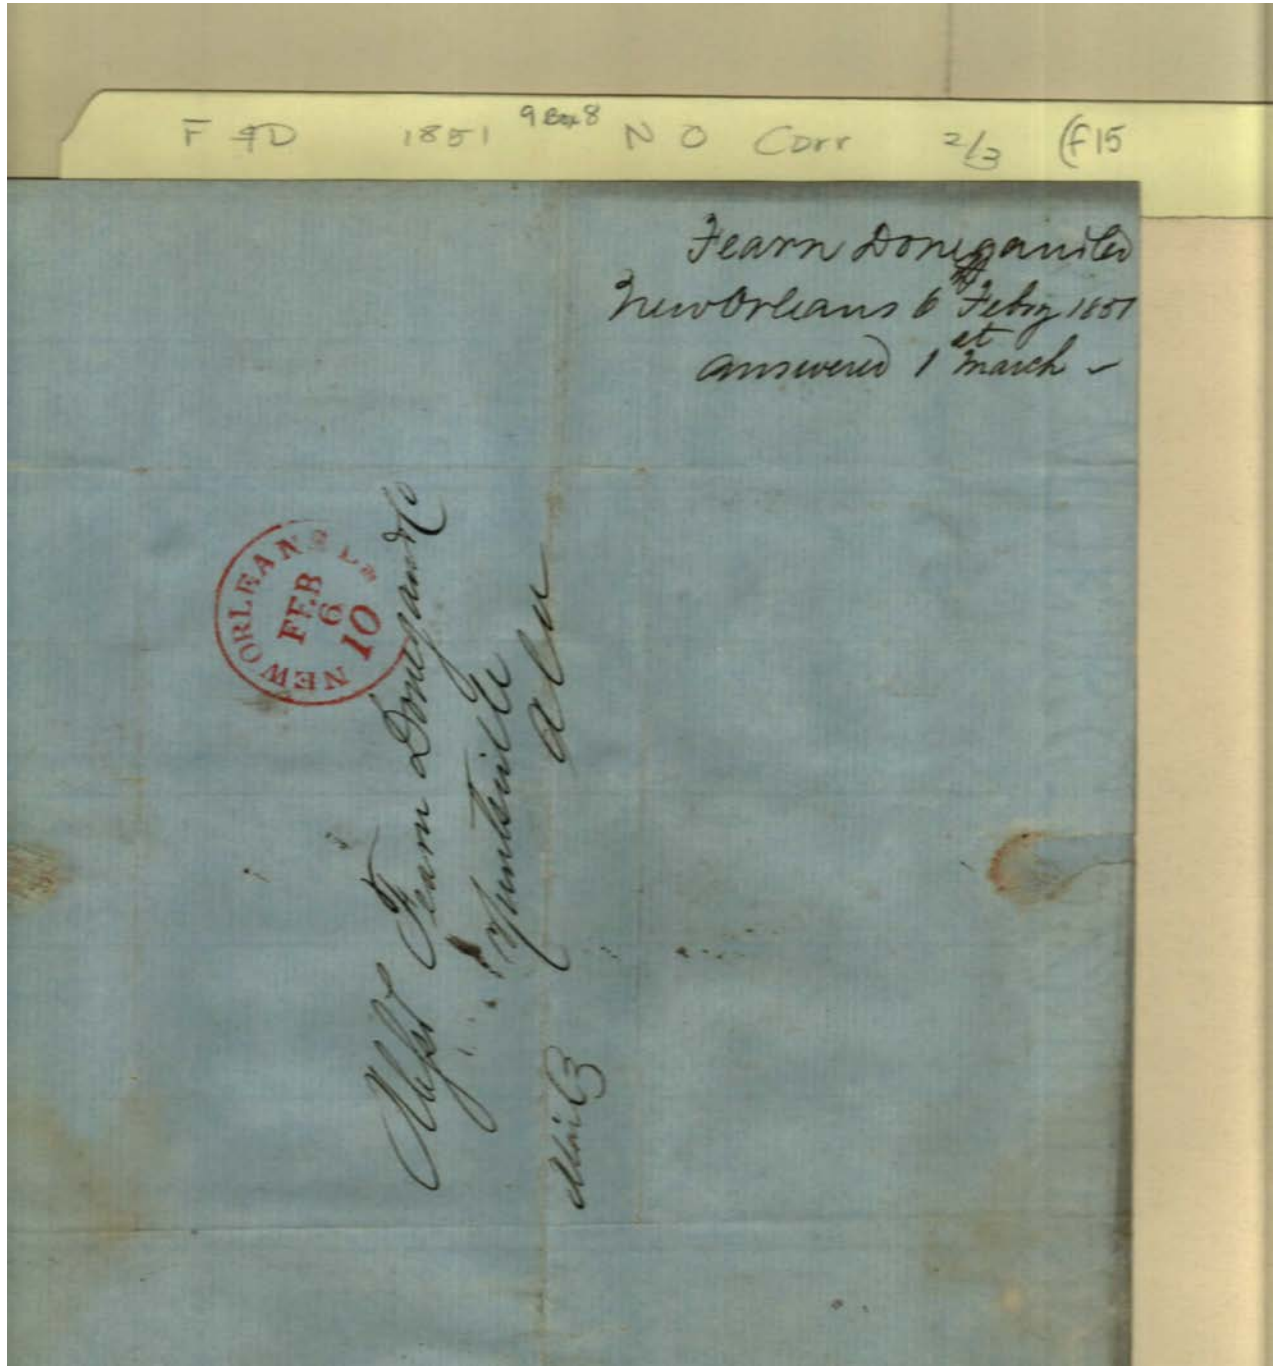 F & D 1851 9 Box 8 N O Corr 2/3 (F15
Fearn Donegan & Co
New Orleans 6th Feby 1851
answered 1st March -
NEW ORLEANS La
FEB
6
10
Messrs Fearn Donegan & Co
Huntsville
Ala
Mail